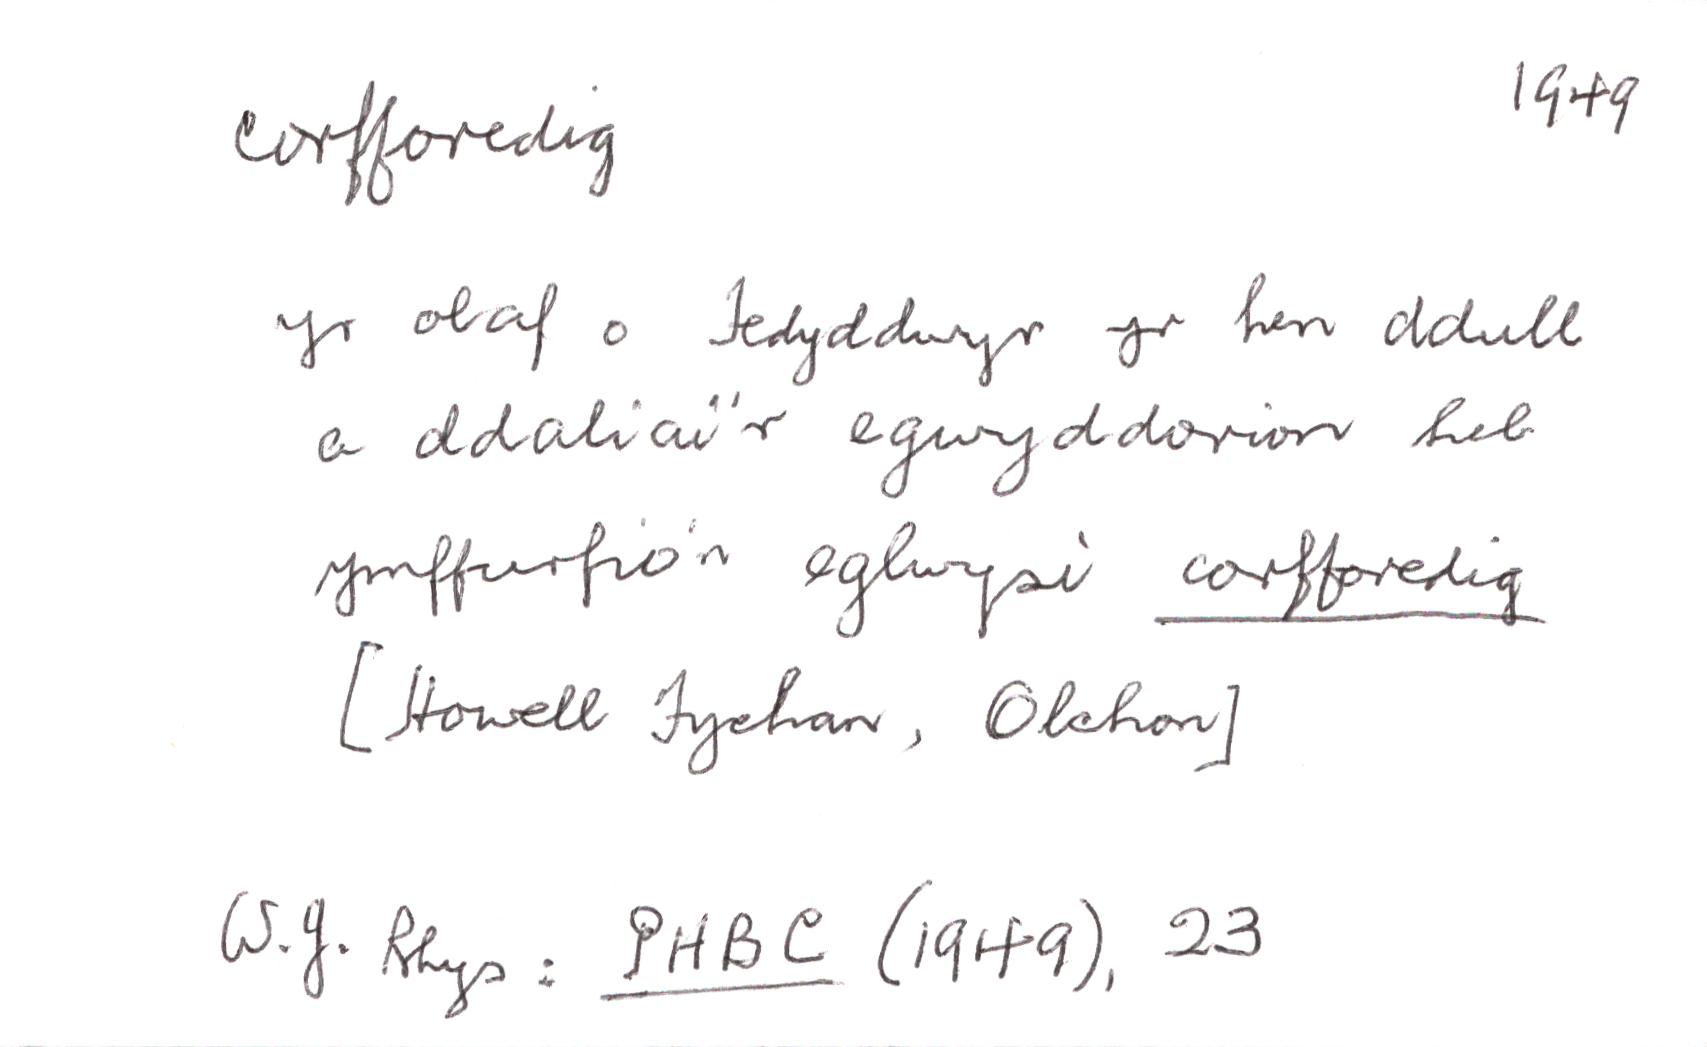 corfforedig
1949
yr olaf o Fedyddwyr yr hen ddull
a ddaliai'r egwyddorion heb
ymffurfio'n eglwysi corfforedig
[Howell Fychan, Olchon]
W.J. Rhys: PHBC (1949), 23